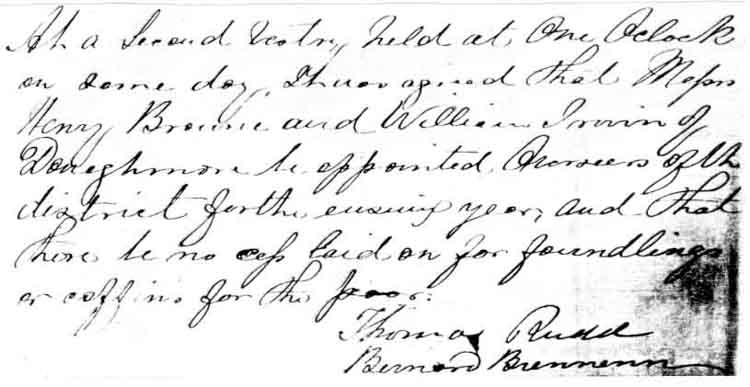 At a Second Vestry held at One Oclock
on same day, It was agreed that Messrs
Henry Browne and William Irwin of
Donaghmore be appointed Overseers of th
district for the ensuing year, and that
there be no cess laid on for foundlings
or coffins for the poor.
Thomas Rudd
Bernard Brennenn